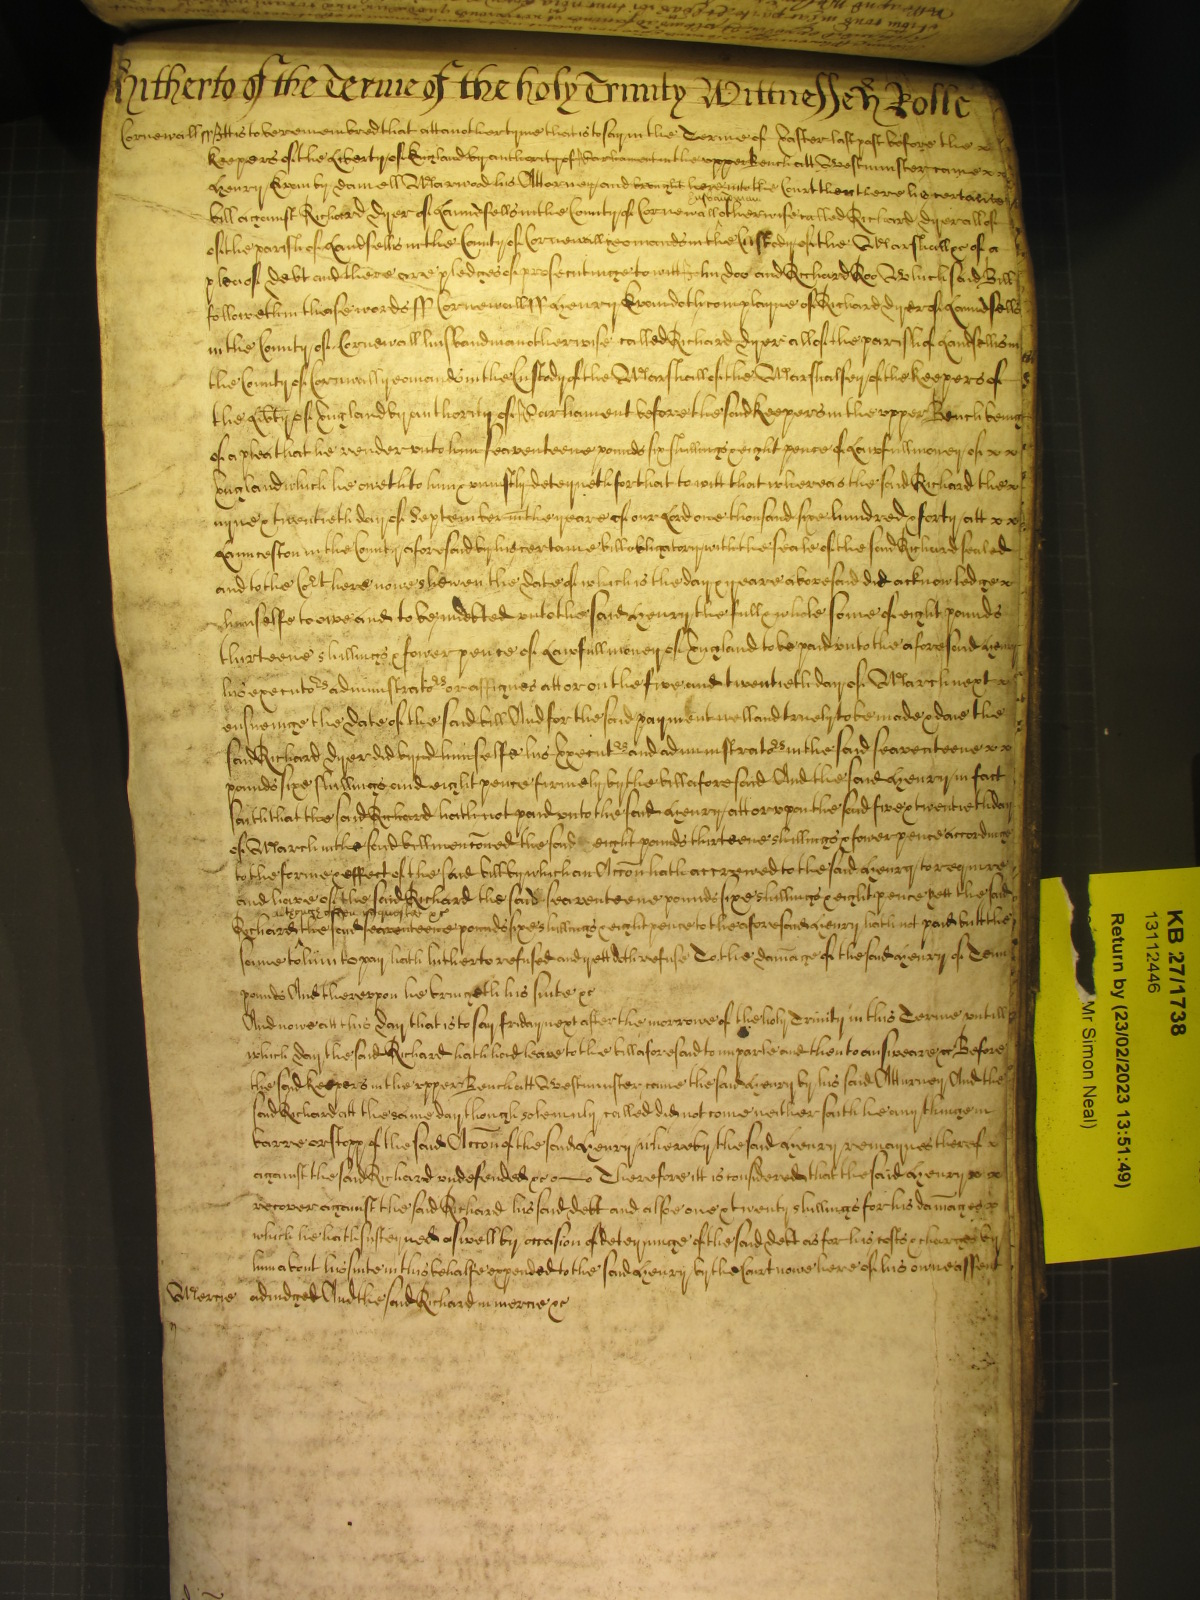 Hitherto of the Terme of the holy Trinity Wittnesseth Rolle
Cornewall ss Itt is to be remembred that att another tyme that is to say in the Terme of Easter last past before the x
Keepers of the Liberty of England by authority of Parliament in the upper Bench att Westminster came x x
Henry by Daniell Warwod his Attorney and brought here into the Court then there his certaine
husbandman
bill against Richard Dyer of Laundsells in the County of Cornewall otherwise called Richard Dyer all of
of the parish of Landsells in the County of Cornewall yeoman in the Custody of the Marshall &c of a
plea of debt and there are pledges of prosecutinge to witt John Doo and Richard Roo Which said Bill
followeth in these words ss Cornewall ss Henry doth complayne of Richard Dyer of Laundsells
in the County of Cornewall husbandman otherwise called Richard Dyer all of the parish of Landsells in
the County of Cornwall yeoman in the Custody of the Marshall of the Marshalsey of the Keepers of
the Libty of England by authority of Parliament before the said Keepers in the upper Bench being
of a plea that he render unto him seaventeene pounds six shillings & eight pence of Lawfull money of x x
England which he oweth to him & uniustly deteyneth for that to witt that whereas the said Richard the x
nyne & twentieth day of September in the yeare of our Lord one thousand sixe hundred & forty att x x
Launceston in the County aforesaid by his certaine bill obligatory with the seale of the said Richard sealed
and to the Cort here nowe shewen the date of which is the day & yeare abovesaid did acknowledge x
himselfe to owe and to be indebted unto the said Henry the full & whole some of eight pounds
thirteene shillings & fower pence of Lawfull money of England to be paid unto the aforesaid Henry
his executors administrators or assignes att or on the five and twentieth day of March next x
ensueinge the date of the said bill And for the said payment well and truely to be made & done the
said Richard Dyer did bynd himselfe his Executrs and administrators in the said seaventeene x x
pounds sixe shillings and eight pence firmely by the bill aforesaid And the said Henry in fact
saith that the said Richard hath not paid unto the said Henry att or upon the said five & twentieth day
of March in the said bill menconed the said eight pounds thirteene shillings & fower pence accordinge
to the forme & effect of the said bill by which an Accon hath accrewed to the said Henry to require
and have of the said Richard the said seaventeene pounds sixe shillings & eight pence Yett the said
although often requested &c
Richard the said seaventeene pounds sixe shillings & eight pence to the aforesaid Henry hath not paid butt the
same to him to pay hath hitherto refused and yett doth refuse To the damage of the said Henry of Tenn
pounds And thereupon he bringeth his suite &c
And nowe att this day that is to say Friday next after the morrowe of the holy Trinity in this Terme untill
which day the said Richard hath had leave to the bill aforesaid to imparle and then to answeare &c Before
the said Keepers in the upper Bench att Westminster came the said Henry by his said Atturney And the
said Richard att the same day though solemnly called did not come neither saith he any thinge in
barre or stopp of the said Accon of the said Henry whereby the said Henry remaynes thereof x
against the said Richard undefended &c Therefore itt is considered that the said Henry x x
recover against the said Richard his said debt and alsoe one & twenty shillings for his damages x
which he hath susteyned as well by occasion of deteyninge of the said debt as for his costs & charges by
him about his suite in this behalfe expended to the said Henry by the Court nowe here of his owne assent
Mercie adiudged And the said Richard in mercie &c
KB 27/1738
13112446
Return by (23/02/2023 13:51:49)
Mr Simon Neal)